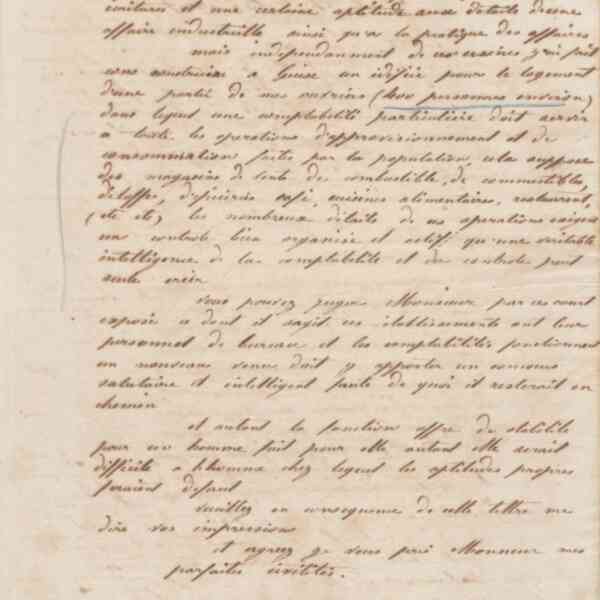 écritures et une certaine aptitude aux détails d'une
affaire industrielle ainsi qu'à la pratique des affaires
mais independamment de ces usines j'ai fait
construire a Guise un édifice pour le logement
d'une partie de mes ouvriers (400 personnes environ)
dans lequel une comptabilité particulière doit servir
a toute les operations d'approvisionnement et de
consommation faites par la population, cela suppose
des magasins de vente de combustible, de commestibles,
d'étoffes, d'épiceries café, cuisines alimentaires, restaurant,
(etc etc) les nombreux détails de ces operations exigent
un controle bien organisé et actif, qu'une veritable
intelligence de la comptabilité et du controle peut
seule créer
vous pouvez juger Monsieur par ce court
exposé a dont il sagit ces établissements ont leur
personnel de bureau et les comptabilités fonctionnent
un nouveau venu doit y apporter un concours
salutaire et intelligent faute de quoi il resterait en
chemin
et autant la fonction offre de stabilité
pour un homme fait pour elle autant elle serait
difficile a l'homme chez lequel les aptitudes propres
feraient defaut
veuillez en consequence de cette lettre me
dire vos impressions
et agreez je vous prie Monsieur mes
parfaites civilités.